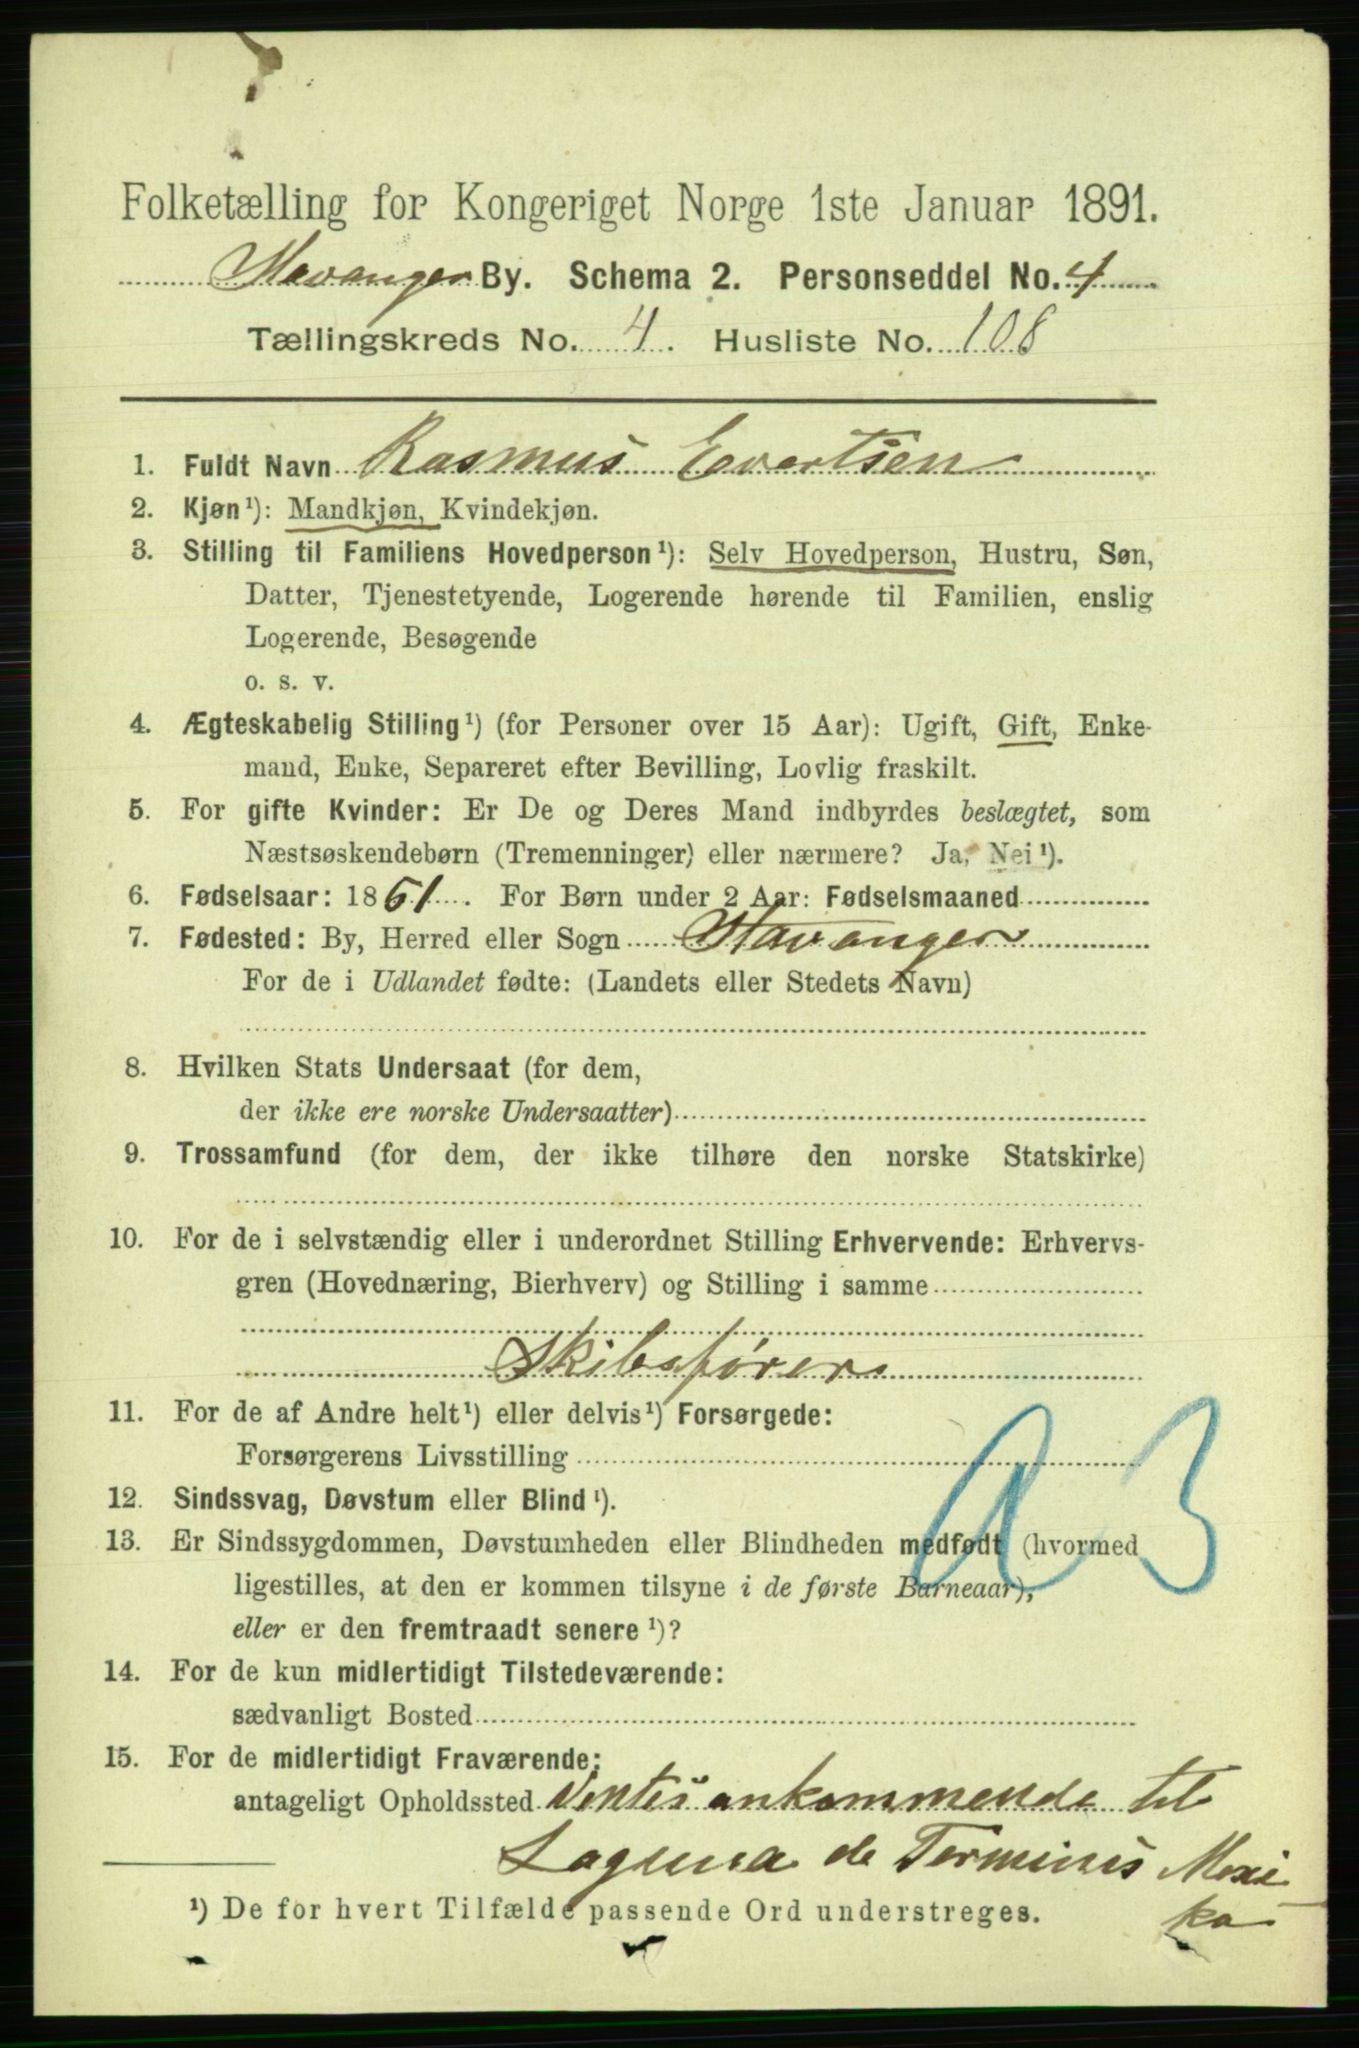 Folketælling for Kongeriget Norge 1ste Januar 1891.
Stavanger By. Schema 2. Personseddel No. 4
Tællingskreds No. 4. Husliste No. 108
1. Fuldt Navn Rasmus Evertsen
2. Kjøn¹): Mandkjøn, Kvindekjøn.
3. Stilling til Familiens Hovedperson¹): Selv Hovedperson, Hustru, Søn,
Datter, Tjenestetyende, Logerende hørende til Familien, enslig
Logerende, Besøgende
o. s. v.
4. Ægteskabelig Stilling¹) (for Personer over 15 Aar): Ugift, Gift, Enke-
mand, Enke, Separeret efter Bevilling, Lovlig fraskilt.
5. For gifte Kvinder: Er De og Deres Mand indbyrdes beslægtet, som
Næstsøskendebørn (Tremenninger) eller nærmere? Ja, Nei¹).
6. Fødselsaar: 1861. For Børn under 2 Aar: Fødselsmaaned
7. Fødested: By, Herred eller Sogn Stavanger
For de i Udlandet fødte: (Landets eller Stedets Navn)
8. Hvilken Stats Undersaat (for dem,
der ikke ere norske Undersaatter)
9. Trossamfund (for dem, der ikke tilhøre den norske Statskirke)
10. For de i selvstændig eller i underordnet Stilling Erhvervende: Erhvervs-
gren (Hovednæring, Bierhverv) og Stilling i samme
Skibsfører
11. For de af Andre helt¹) eller delvis¹) Forsørgede:
Forsørgerens Livsstilling
12. Sindssvag, Døvstum eller Blind¹).
13. Er Sindssygdommen, Døvstumheden eller Blindheden medfødt (hvormed
ligestilles, at den er kommen tilsyne i de første Barneaar),
eller er den fremtraadt senere¹)?
14. For de kun midlertidigt Tilstedeværende:
sædvanligt Bosted
15. For de midlertidigt Fraværende:
antageligt Opholdssted Ventes ankommende til
Laguna de Terminis Mexi
ka
¹) De for hvert Tilfælde passende Ord understreges.
a 3